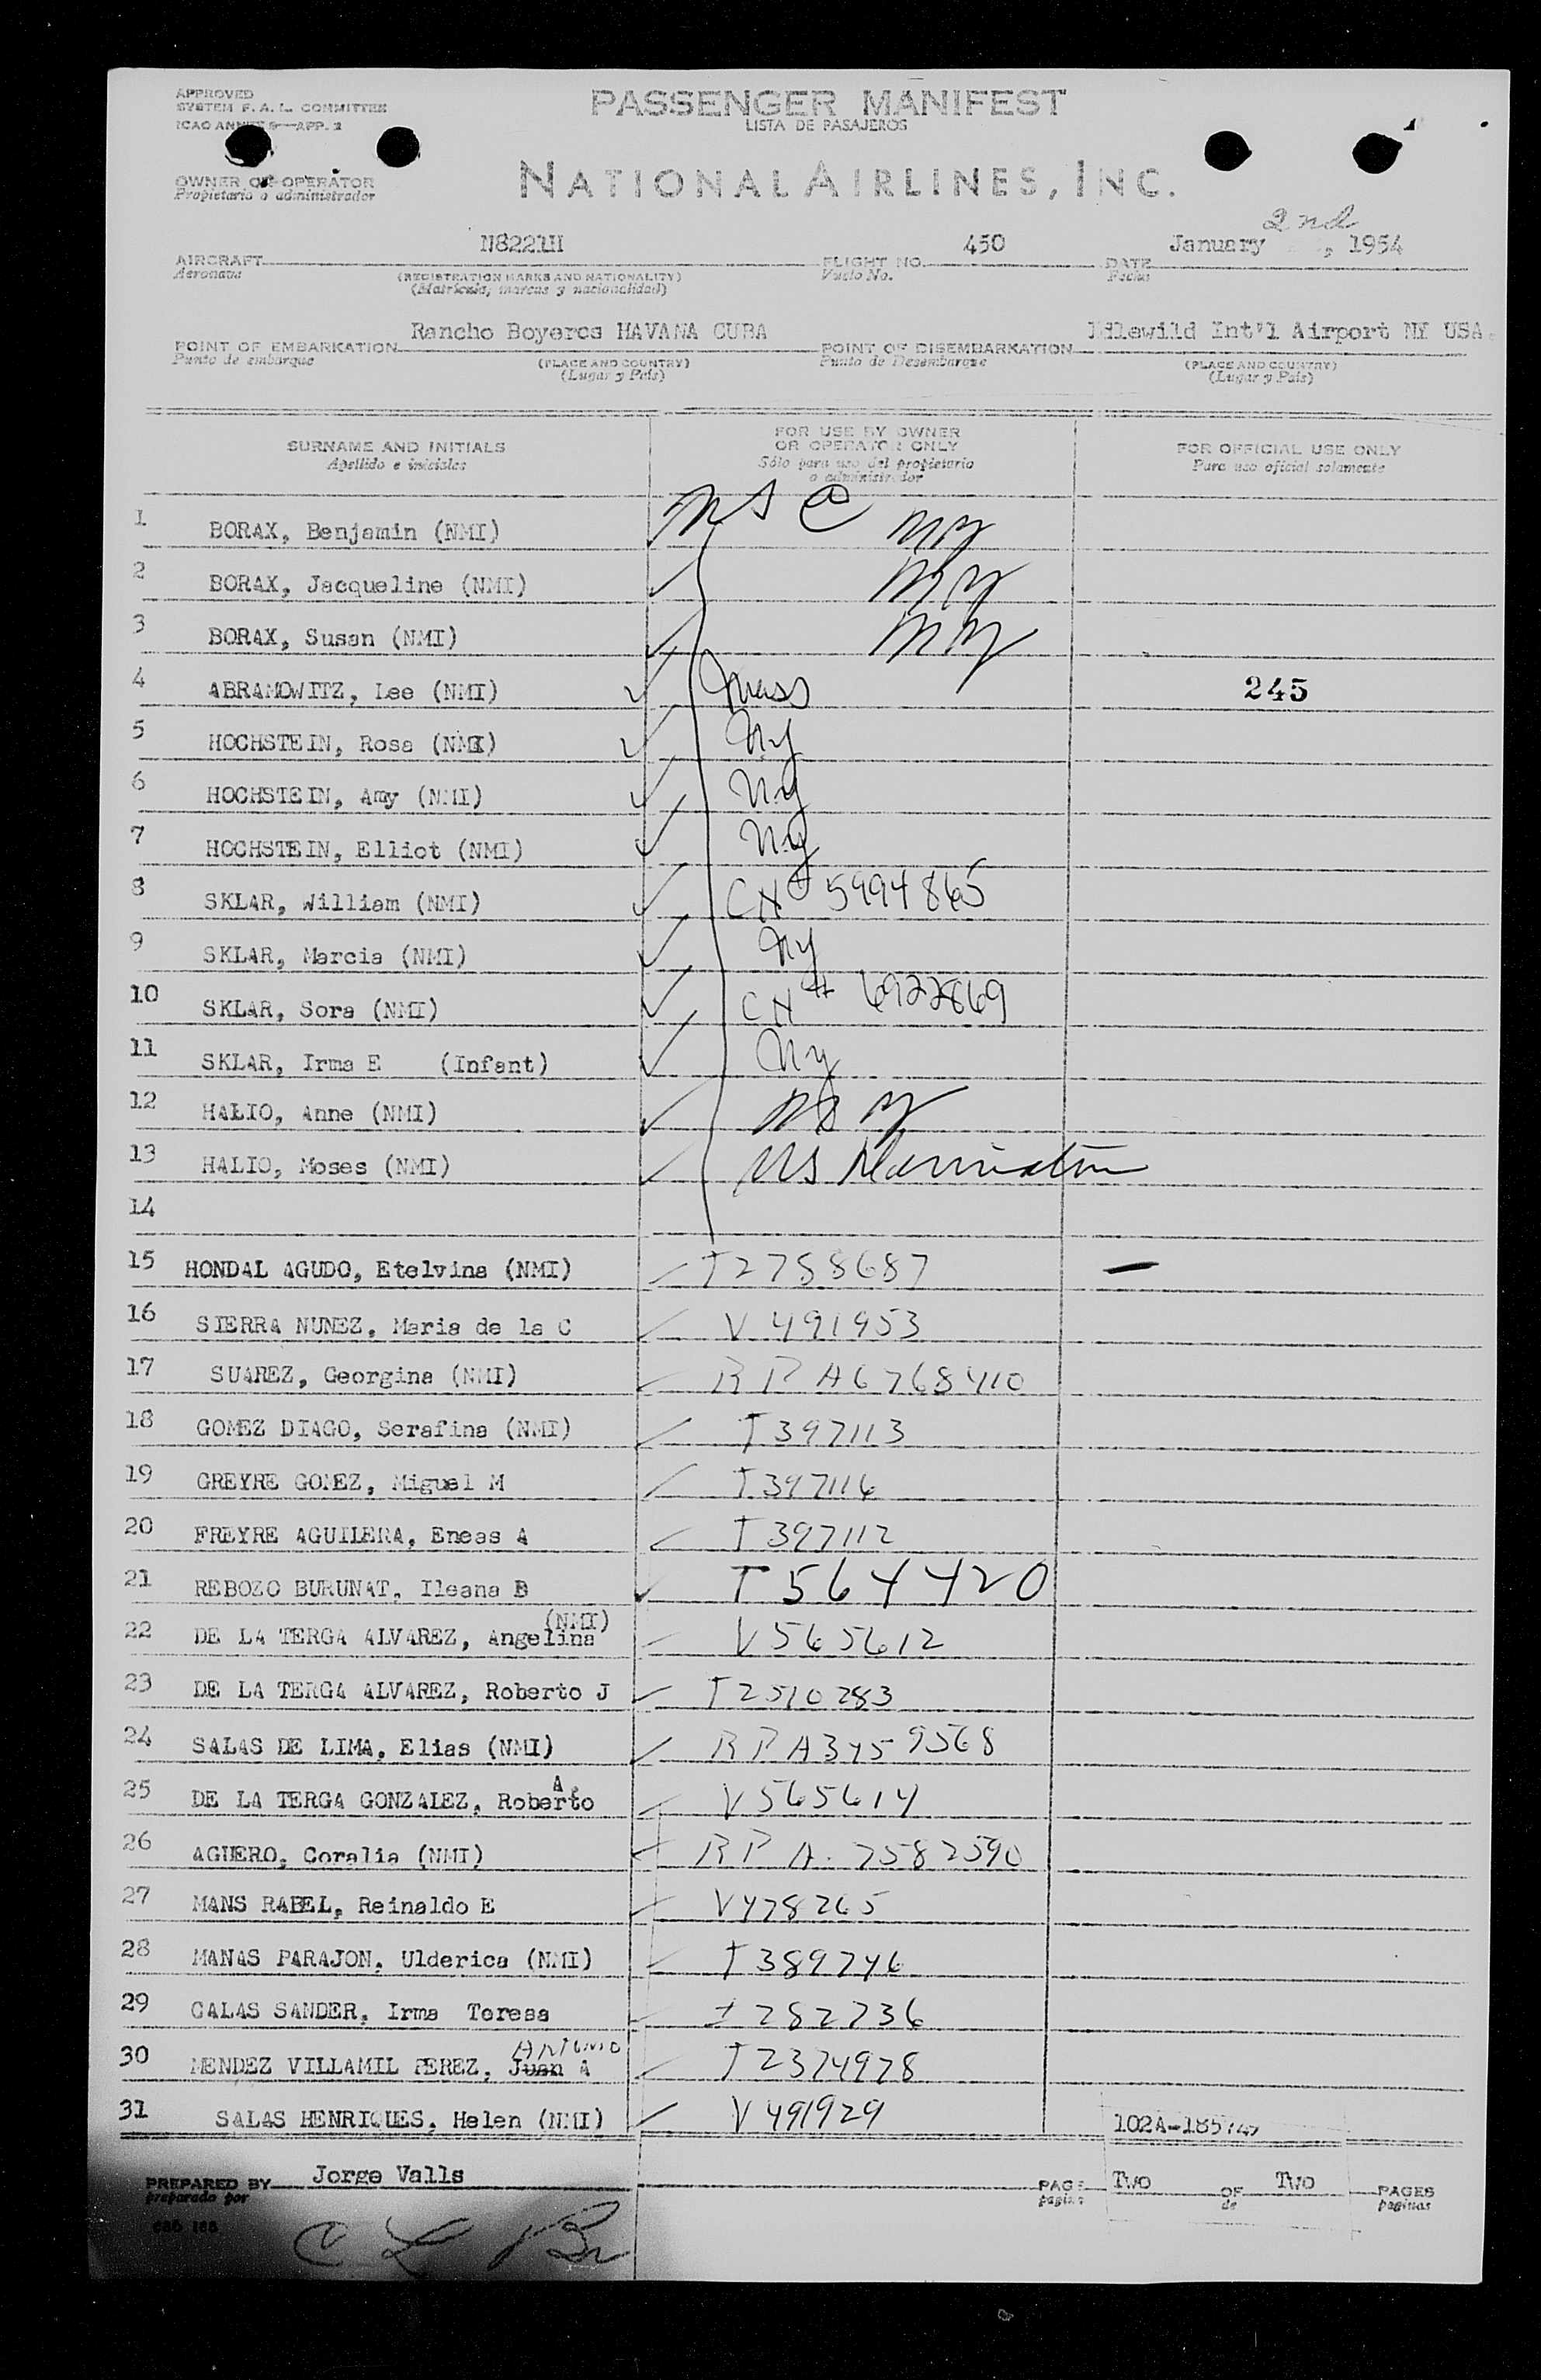 APPROVED
SYSTEM F. A. L. COMMITTEE
ICAO ANNEX 9—APP. 2
PASSENGER MANIFEST
LISTA DE PASAJEROS
OWNER OR OPERATOR
Propietario o administrador
NATIONAL AIRLINES, INC.
AIRCRAFT N8221H FLIGHT NO. 450 DATE January 2nd, 1954
Aeronave (REGISTRATION MARKS AND NATIONALITY) Vuelo No. Fecha
(Matrícula, marcas y nacionalidad)
POINT OF EMBARKATION Rancho Boyeros HAVANA CUBA POINT OF DISEMBARKATION Idlewild Int'l Airport NY USA.
Punto de embarque (PLACE AND COUNTRY) Punto de Desembarque (PLACE AND COUNTRY)
(Lugar y País) (Lugar y País)
SURNAME AND INITIALS
Apellido e iniciales
FOR USE BY OWNER
OR OPERATOR ONLY
Sólo para uso del propietario
o administrador
FOR OFFICIAL USE ONLY
Para uso oficial solamente
U S C
1 BORAX, Benjamin (NMI) NY
2 BORAX, Jacqueline (NMI) NY
3 BORAX, Susan (NMI) NY
4 ABRAMOWITZ, Lee (NMI) Mass 245
5 HOCHSTEIN, Rose (NMI) Ny
6 HOCHSTEIN, Amy (NMI) Ny
7 HOCHSTEIN, Elliot (NMI) Ny
8 SKLAR, William (NMI) CN# 5994865
9 SKLAR, Marcia (NMI) Ny
10 SKLAR, Sora (NMI) CN# 6922869
11 SKLAR, Irma E (Infant) Ny
12 HALIO, Anne (NMI) NY
13 HALIO, Moses (NMI) US
14
15 HONDAL AGUDO, Etelvina (NMI) T2788687
16 SIERRA NUNEZ, Maria de la C V 491953
17 SUAREZ, Georgina (NMI) R P A6768410
18 GOMEZ DIAGO, Serafina (NMI) T397113
19 GREYRE GOMEZ, Miguel M T397116
20 FREYRE AGUILERA, Eneas A T397112
21 REBOZO BURUNAT, Ileana B T564420
22 DE LA TERGA ALVAREZ, Angelina (NMI) V565612
23 DE LA TERGA ALVAREZ, Roberto J T2510283
24 SALAS DE LIMA, Elias (NMI) R P A3459568
25 DE LA TERGA GONZALEZ, Roberto A. V565614
26 AGUERO, Coralia (NMI) R P A. 7582590
27 MANS RABEL, Reinaldo E V478265
28 MANAS PARAJON, Ulderica (NMI) T389746
29 CALAS SANDER, Irma Teresa I 282736
30 MENDEZ VILLAMIL PEREZ, Juan A ANTONIO T2374978
31 SALAS HENRIQUES, Helen (NMI) V491929
PREPARED BY Jorge Valls
preparado por
PAGE Two OF Two PAGES
pagina de paginas